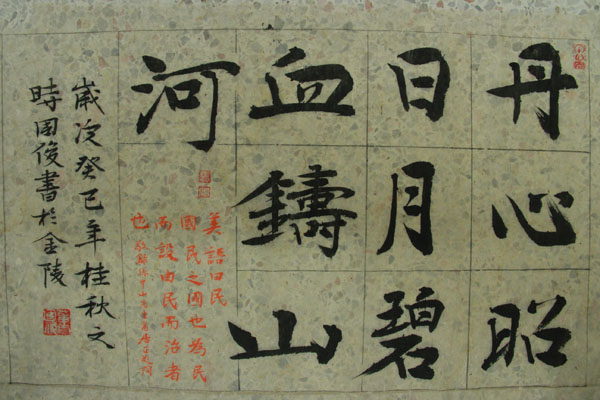 丹心昭
日月碧
血鑄山
河
美語曰民
國民之國也為民
而設由民而治者
也
歲次癸巳年桂秋之
時周俊書於金陵